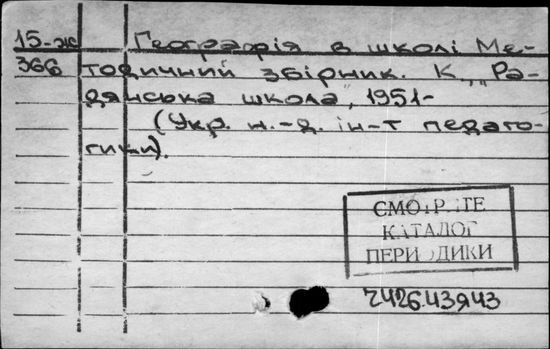 15-ж Географія в школі Ме-
366 тодичний збірник. К., "Ра-
дянська школа", 1951-
(Укр. н.-д. ін-т педаго-
гики).
СМОТРИТЕ
КАТАЛОГ
ПЕРИОДИКИ